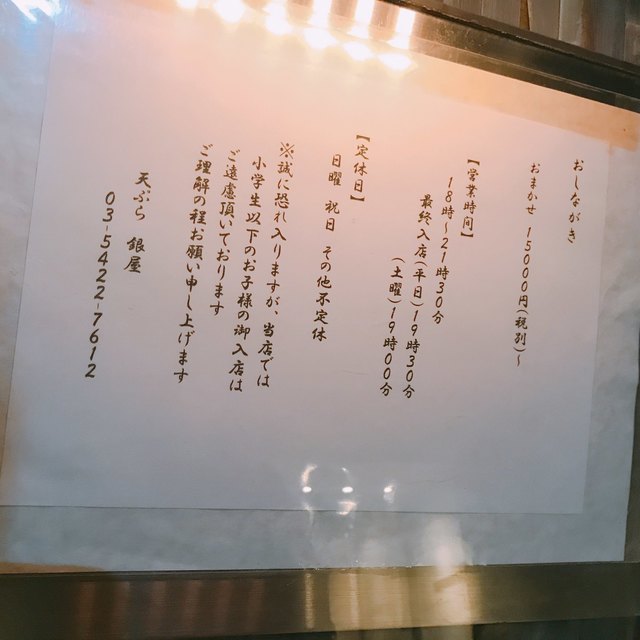 おしながき
おまかせ 15000円(税別)~
【営業時間】
18時~21時30分
最終入店(平日)19時30分
(土曜)19時00分
【定休日】
日曜 祝日 その他不定休
※誠に恐れ入りますが、当店では
小学生以下のお子様の御入店は
ご遠慮頂いております
ご理解の程お願い申し上げます
天ぷら 銀屋
03-5422-7612